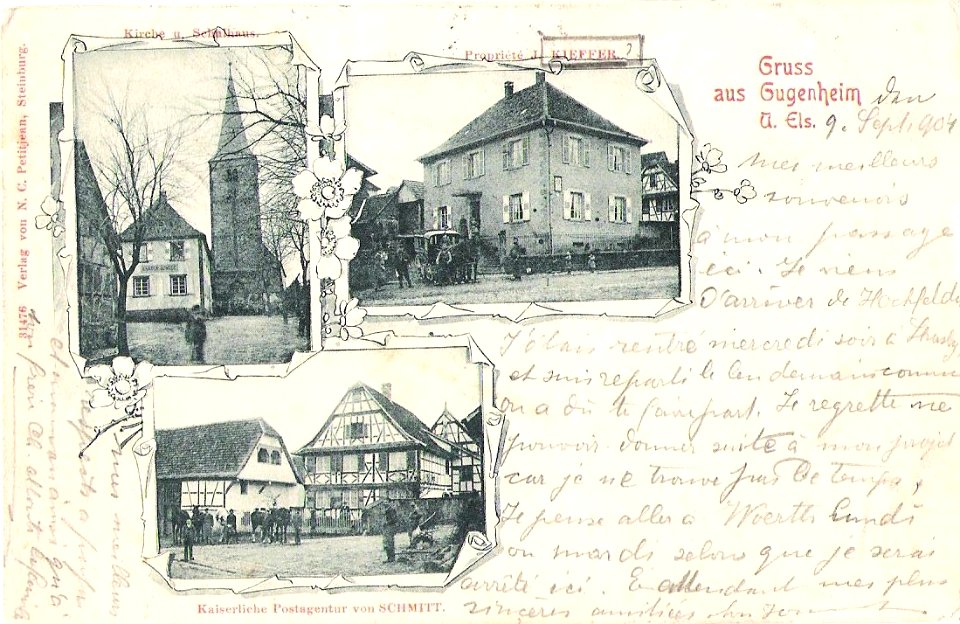 Kirche u. Schulhaus.
Propriété J. KIEFFER. ?
Gruss
aus Gugenheim
U. Els.
den
9. Sept. 1904
Mes meilleurs
souvenirs
à mon passage
ici. Je viens
d'arriver de Hochfelden
J'étais rentré mercredi soir à
et suis reparti le lendemain comme
on a dû te faire part. Je regrette ne
pouvoir donner suite à mon projet
car je ne trouve pas de temps,
Je pense aller à Woerth lundi
ou mardi selon que je serai
arrêté ici. En attendant mes plus
sincères amitiés
Kaiserliche Postagentur von SCHMITT.
31476 Verlag von N. C. Petitjean, Steinburg.
mes meilleurs